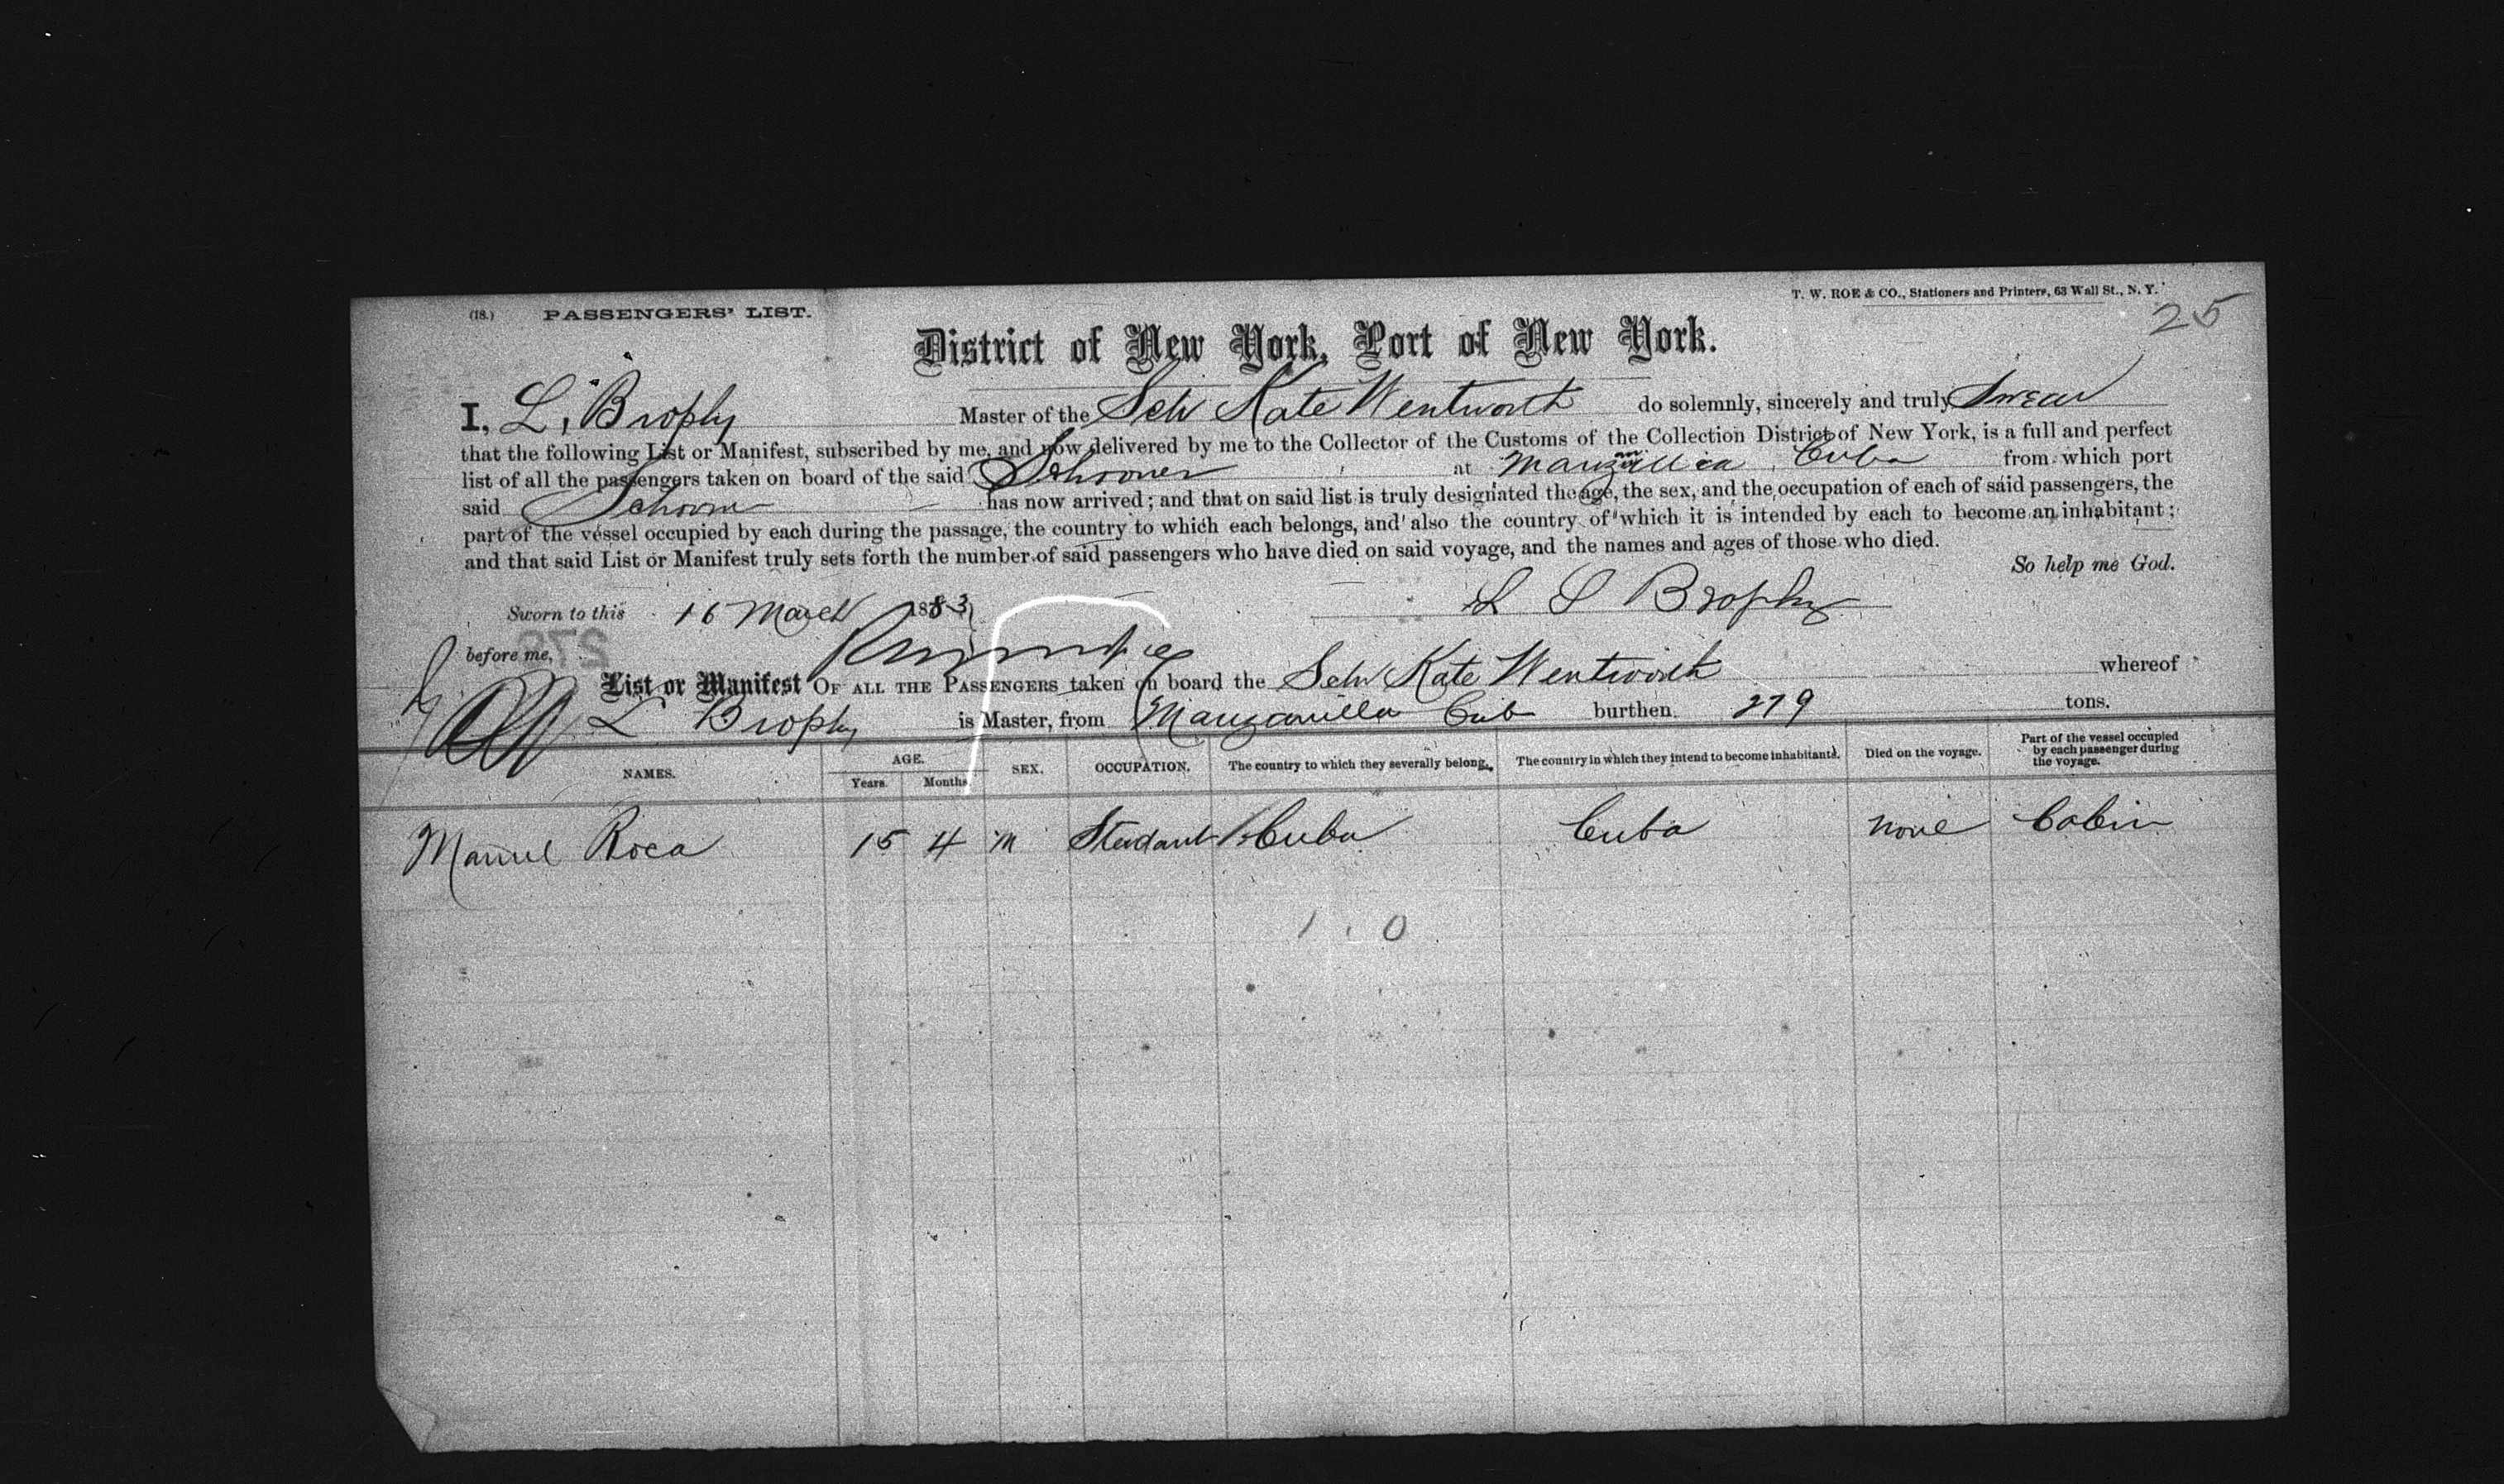 (18.) PASSENGERS' LIST.
T. W. ROE & CO., Stationers and Printers, 63 Wall St., N. Y.
25
District of New York, Port of New York.
I, L, Brophy Master of the Sch Kate Wentworth do solemnly, sincerely and truly Swear
that the following List or Manifest, subscribed by me, and now delivered by me to the Collector of the Customs of the Collection District of New York, is a full and perfect
list of all the passengers taken on board of the said Schooner at Cuba from which port
said Schooner has now arrived; and that on said list is truly designated the age, the sex, and the occupation of each of said passengers, the
part of the vessel occupied by each during the passage, the country to which each belongs, and also the country of which it is intended by each to become an inhabitant;
and that said List or Manifest truly sets forth the number of said passengers who have died on said voyage, and the names and ages of those who died.
So help me God.
Sworn to this 16 March 1883
L S Brophy
before me,
List or Manifest OF ALL THE PASSENGERS taken on board the Sch Kate Wentworth whereof
L Brophy is Master, from Manzanilla Cub burthen 279 tons.
NAMES. AGE. Years. Months. SEX. OCCUPATION. The country to which they severally belong. The country in which they intend to become inhabitants. Died on the voyage. Part of the vessel occupied by each passenger during the voyage.
Manuel Roca 15 4 M Studant Cuba Cuba none Cabin
1 . 0